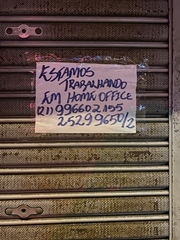 ESTAMOS
TRABALHANDO
EM HOME OFFICE
(21) 996602155
25299650/2